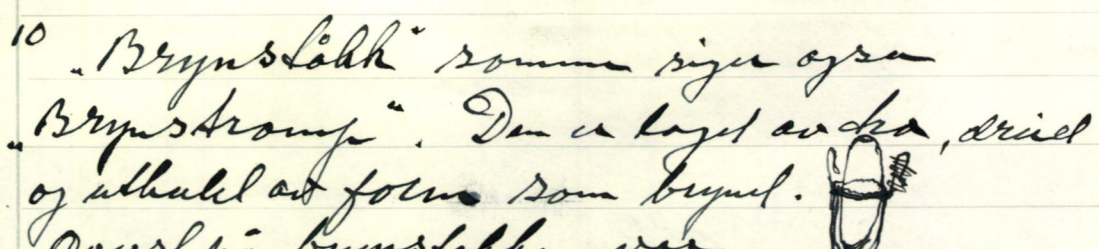 10
„Brynståkk" somme siger ogsa
„Brynstromp". Den er laget av tre, dreiel
og uthulet av form som brynet.
brynståkk var